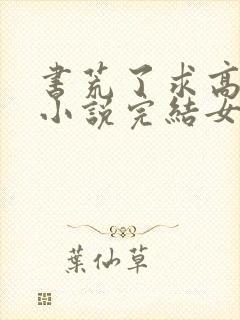 书荒了求高
小說完結女
葉仙草